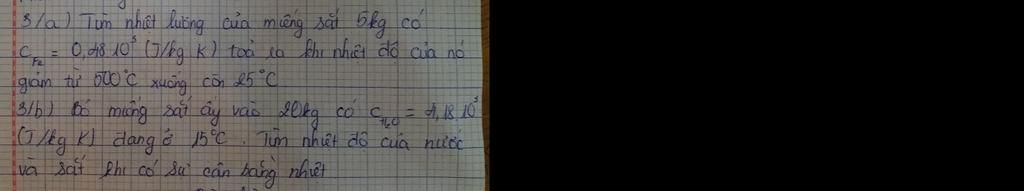 3/a) Tìm nhiệt lượng của miếng sắt 5kg có
C Fe = 0,48.10³ (J/kg K) toả ra khi nhiệt độ của nó
giảm từ 500°C xuống còn 25°C
3/b) Bỏ miếng sắt ấy vào 20kg có C H₂O = 4,18.10³
(J/kg K) đang ở 15°C. Tìm nhiệt độ của nước
và sắt khi có sự cân bằng nhiệt